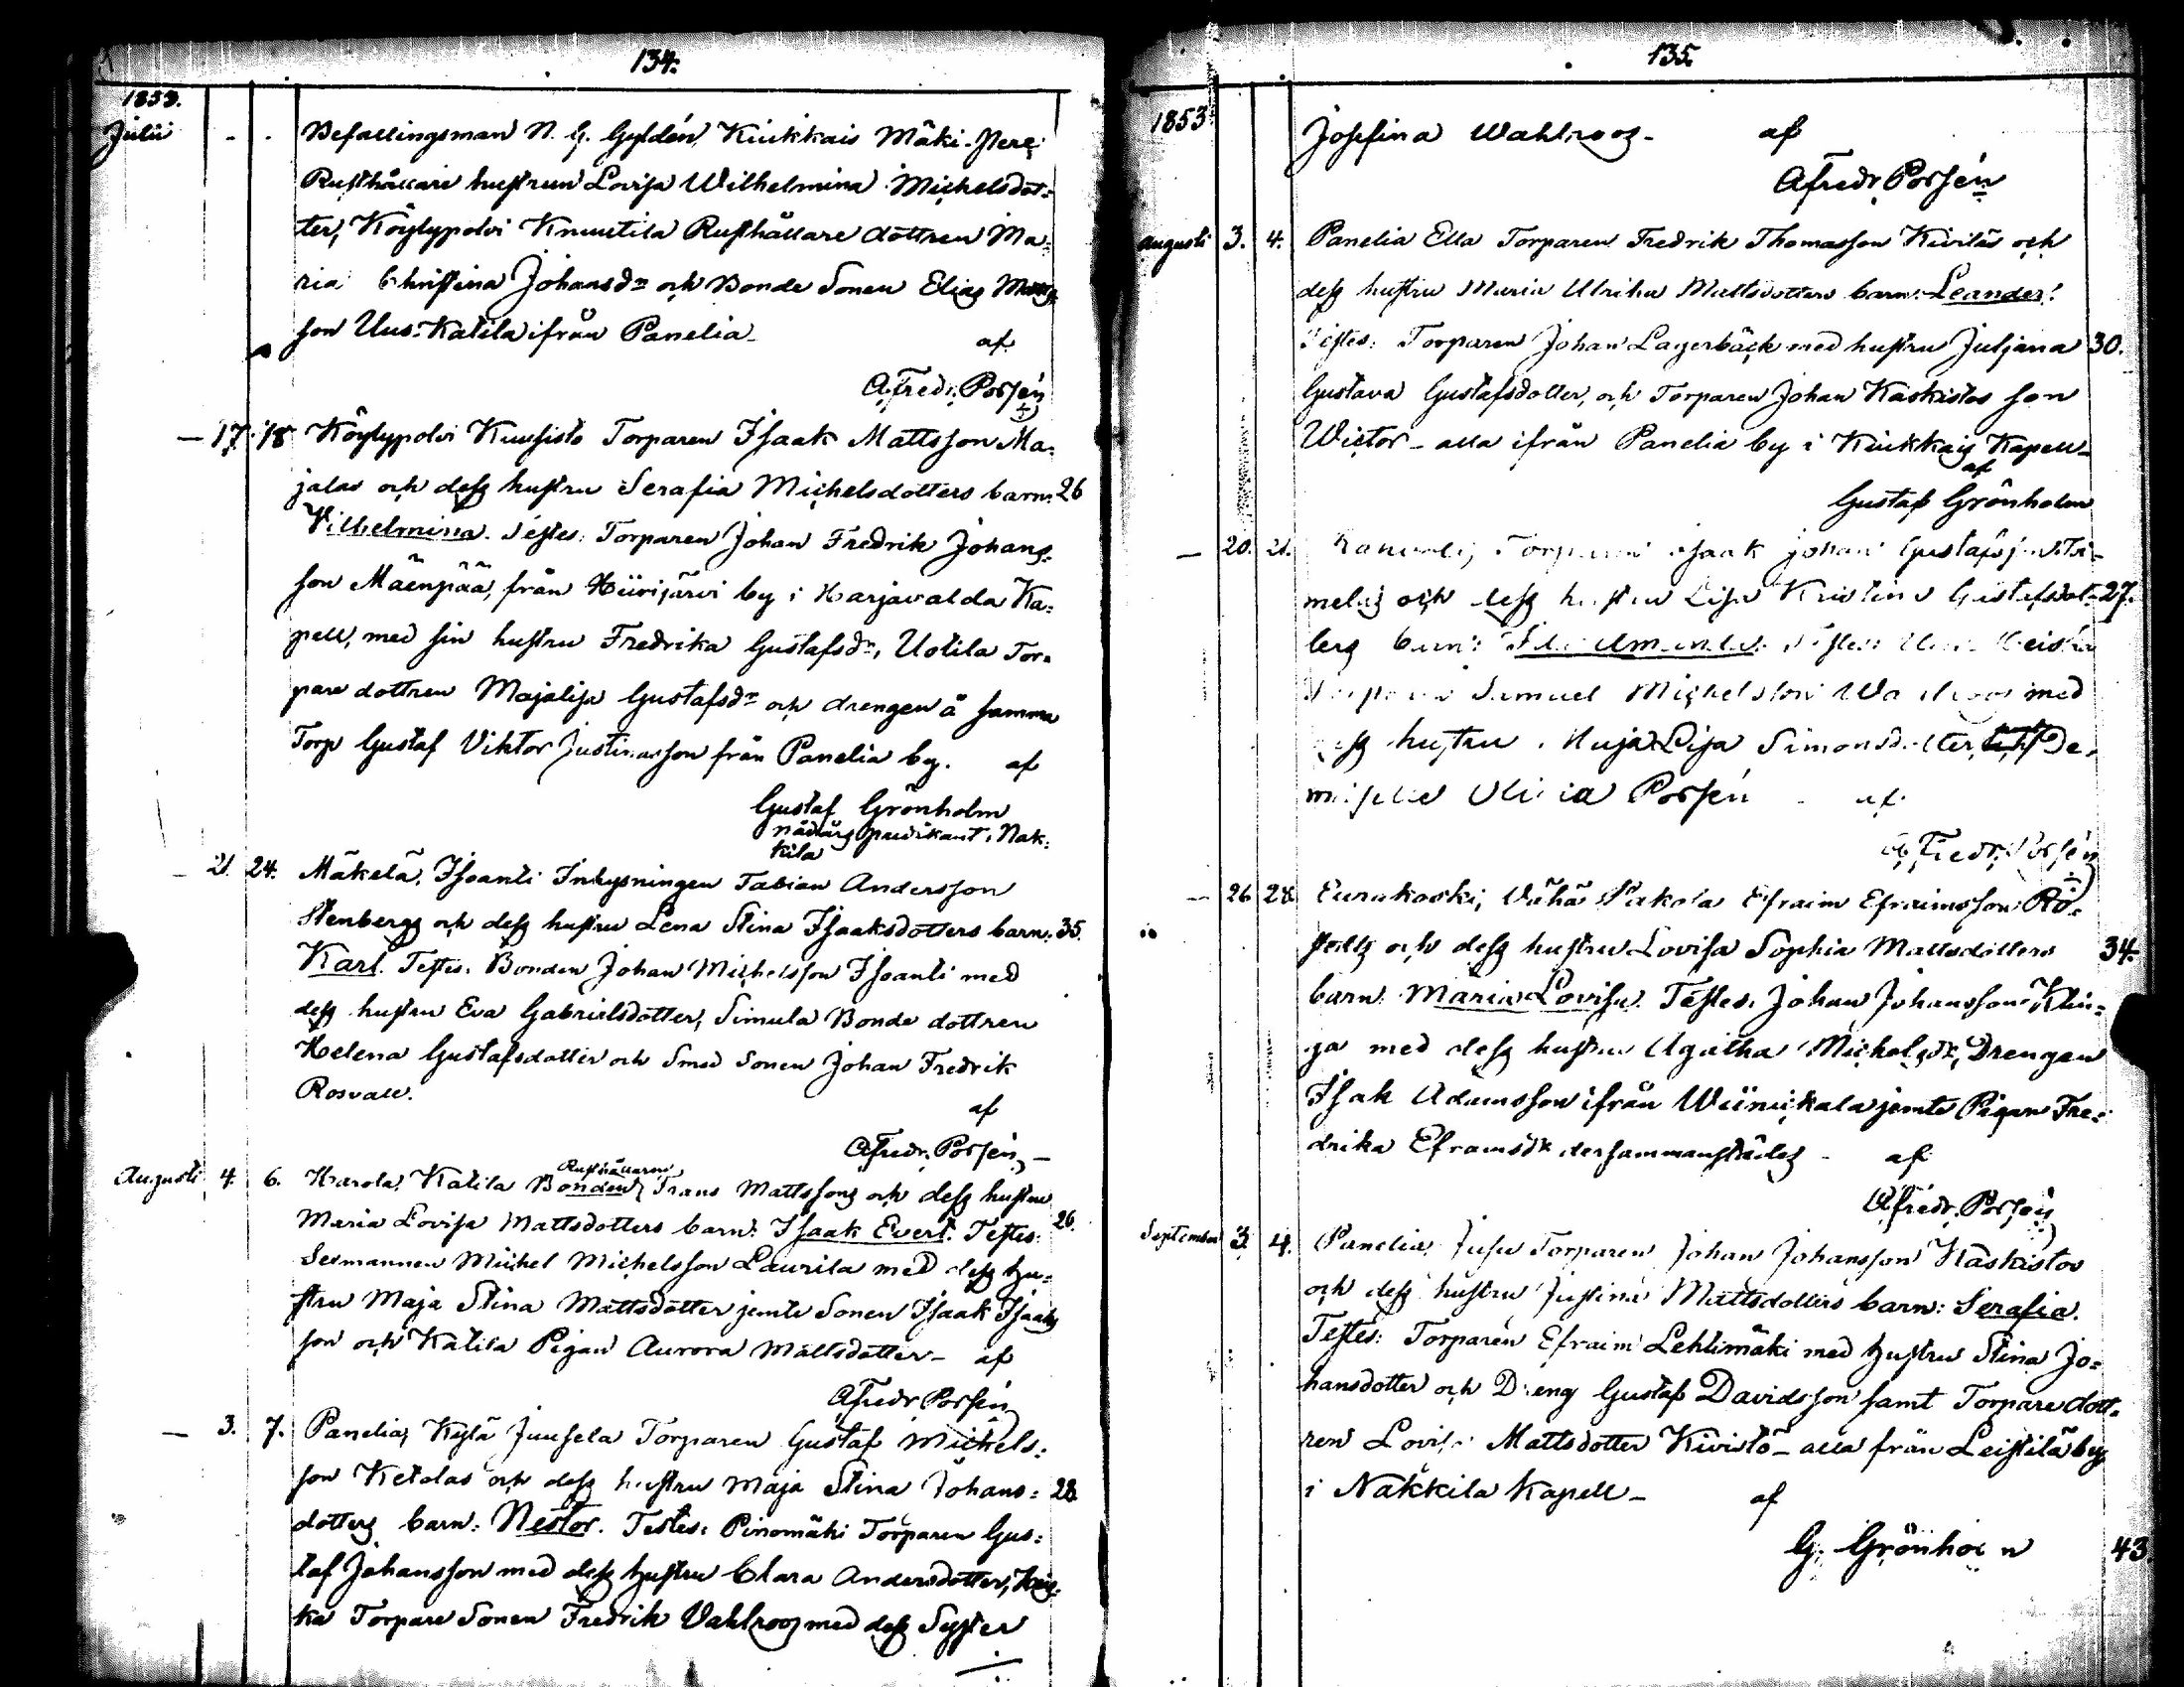 134.
1853.
Julii - - Befallingsman N. G. Gyldén, Kiukkais Mäki-Pere
Rusthållare hustrun Lovisa Wilhelmina Michelsdot=
ter, Köylypolvi Knuutila Rusthållare dottren Ma=
ria Christina Johansdr och Bonde Sonen Elias
son Uus-Katila ifrån Panelia_ af
A. Fredr. Porsén
— 17. 18 Köylypolvi Kuusisto Torparen Isaak Mattsson Ma=
jalas och dess hustru Serafia Michelsdotters barn: 26
Vilhelmina. Testes: Torparen Johan Fredrik Johans=
son Mäenpää, från Hiirijärvi by i Harjavalda Ka=
pell, med sin hustru Fredrika Gustafsdr, Uotila Tor=
pare dottren Majalisa Gustafsdr och drengen å samma
Torp Gustaf Viktor Justinasson från Panelia by. af
Gustaf Grönholm
nådårs predikant i Nak=
kila
— 21. 24. Mäkelä, Isoanti Inhysningen Fabian Andersson
Stenbergs och dess hustru Lena Stina Isaaksdotters barn: 35.
Karl. Testes: Bonden Johan Michelsson Isoanti med
dess hustru Eva Gabrielsdotter, Simula Bonde dottren
Helena Gustafsdotter och Smed Sonen Johan Fredrik
Rosvall.
af
A. Fredr. Porsén —
Rusthållaren
Augusti 4. 6. Harola, Katila Bonden Frans Mattssons och dess hustru
Maria Lovisa Mattsdotters barn: Isaak Evert. Testes: 26.
Sexmannen Michel Michelsson Laurila med dess hu=
stru Maja Stina Mattsdotter jemte Sonen Isaak Isaaks
son och Katila Pigan Aurora Mattsdotter_ af
A. Fredr Porsén
— 3. 7. Panelia, Kylä Juusela Torparen Gustaf Michels=
son Ketolas och dess hustru Maja Stina Johans= 28
dotters barn: Nestor. Testes: Pinomäki Torparen Gus=
taf Johansson med dess hustru Clara Andersdotter,
ka Torpare Sonen Fredrik Vahlroos med dess Syster
135.
1853 Josefina Wahlroos_ af
A Fredr. Porsén
Augusti 3. 4. Panelia Ella Torparen Fredrik Thomasson Kivitas och
dess hustru Maria Ulrika Mattsdotters barn: Leander.
Testes: Torparen Johan Lagerbäck med hustru Juljana 30.
Gustava Gustafsdotter, och Torparen Johan Kaskistos son
Wictor_ alla ifrån Panelia by i Kiukkais Kapell_
af
Gustaf Grönholm
— 20. 21. Torparen Isaak Johan Gustafsson
melas och dess hustru Lisa Kristina Gustafsdot= 27.
ters barn: Testes:
Samuel Michelsson med
dess hustru Maja Lisa Simonsdotter, De=
Porsén af
A. Fredr. Porsén
— 26 28 Eurakoski, Vähä Efraim Efraimsson Ro=
stedts och dess hustru Lovisa Sophia Mattsdotters 34.
barn: Maria Lovisa. Testes: Johan Johansson
ja med dess hustru Agatha Michelsdr, Drengen
Isak Adamsson ifrån Wiinickala jemte Pigan Fre=
drika Eframsdr dersammanstädes_ af
A. Fredr. Porsén
September 3. 4. Panelia, Jusu Torparen Johan Johansson Kaskistos
och dess hustru Justina Mattsdotters barn: Serafia.
Testes: Torparen Efraim Lehtimäki med hustru Stina Jo=
hansdotter och Dreng Gustaf Davidsson samt Torpare dott=
ren Lovisa Mattsdotter Kivistö_ alla från Leistilä by
i Nakkila Kapell_ af
G. Grönholm 43